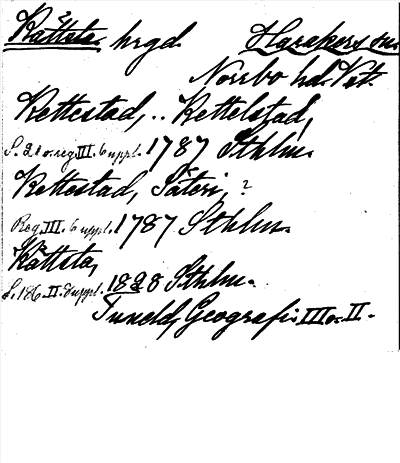 Kättsta. hrgd. Harakers sn.
Norrbo hd. Vst.
Kettestad, .. Kettelstad,
S. 21 o. reg. III. 6 uppl. 1787 Sthlm.
Kettestad, Säteri, ?
Reg. III. 6 uppl. 1787 Sthlm.
Kättsta,
S. 186. II. 8 uppl. 1828 Sthlm.
Tuneld, Geografi. III o. II.